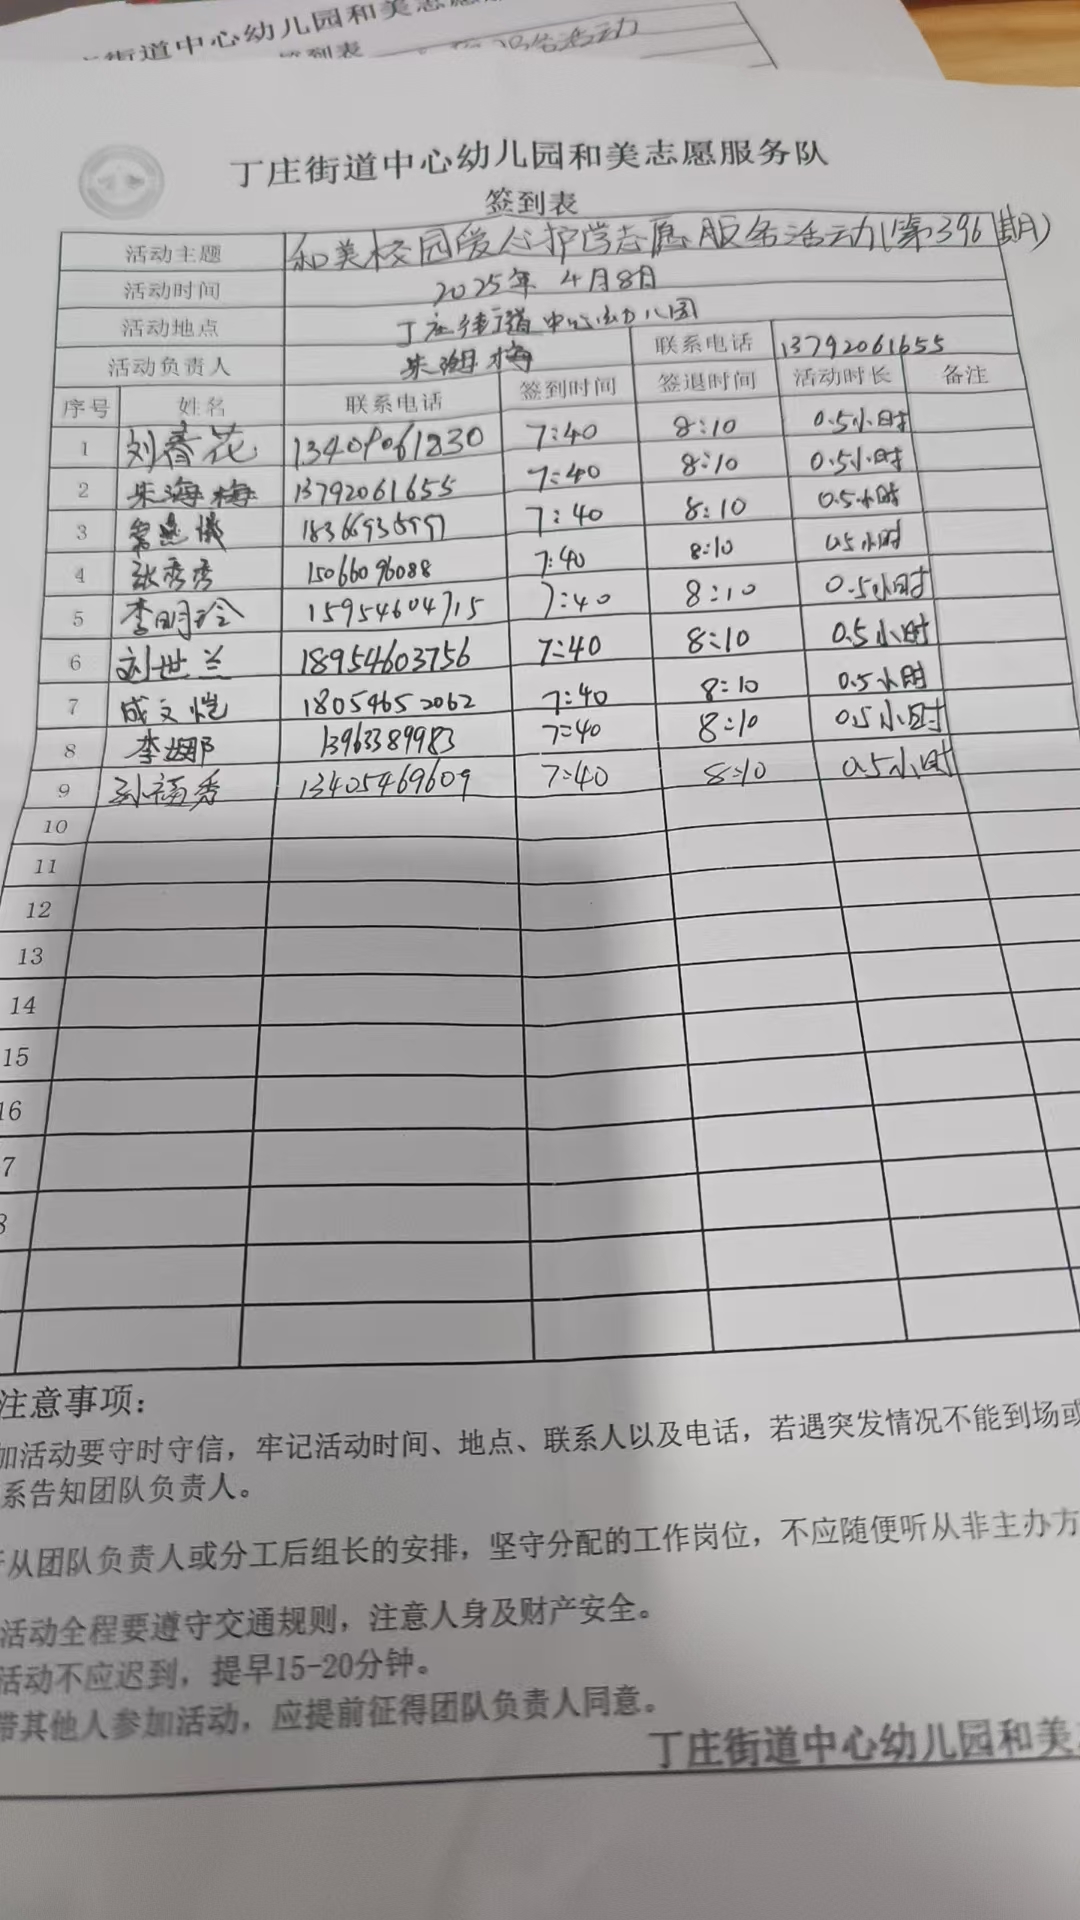 街道中心幼儿园和美志愿服
签到表
丁庄街道中心幼儿园和美志愿服务队
签到表
活动主题 和美校园爱心护学志愿服务活动(第396期)
活动时间 2025年 4月8日
活动地点 丁庄街道中心幼儿园
活动负责人 朱海梅 联系电话 13792061655
序号 姓名 联系电话 签到时间 签退时间 活动时长 备注
1 刘春花 13409061830 7:40 8:10 0.5小时
2 朱海梅 13792061655 7:40 8:10 0.5小时
3 7:40 8:10 0.5小时
4 张秀秀 15066096088 7:40 8:10 0.5小时
5 李明玲 15954604715 7:40 8:10 0.5小时
6 刘世兰 18954603756 7:40 8:10 0.5小时
7 成文恺 18054652062 7:40 8:10 0.5小时
8 李娜 13963389983 7:40 8:10 0.5小时
9 孙福秀 13405469609 7:40 8:10 0.5小时
10
11
12
13
14
15
16
7
8
注意事项：
加活动要守时守信，牢记活动时间、地点、联系人以及电话，若遇突发情况不能到场或
系告知团队负责人。
从团队负责人或分工后组长的安排，坚守分配的工作岗位，不应随便听从非主办方
活动全程要遵守交通规则，注意人身及财产安全。
活动不应迟到，提早15-20分钟。
带其他人参加活动，应提前征得团队负责人同意。
丁庄街道中心幼儿园和美